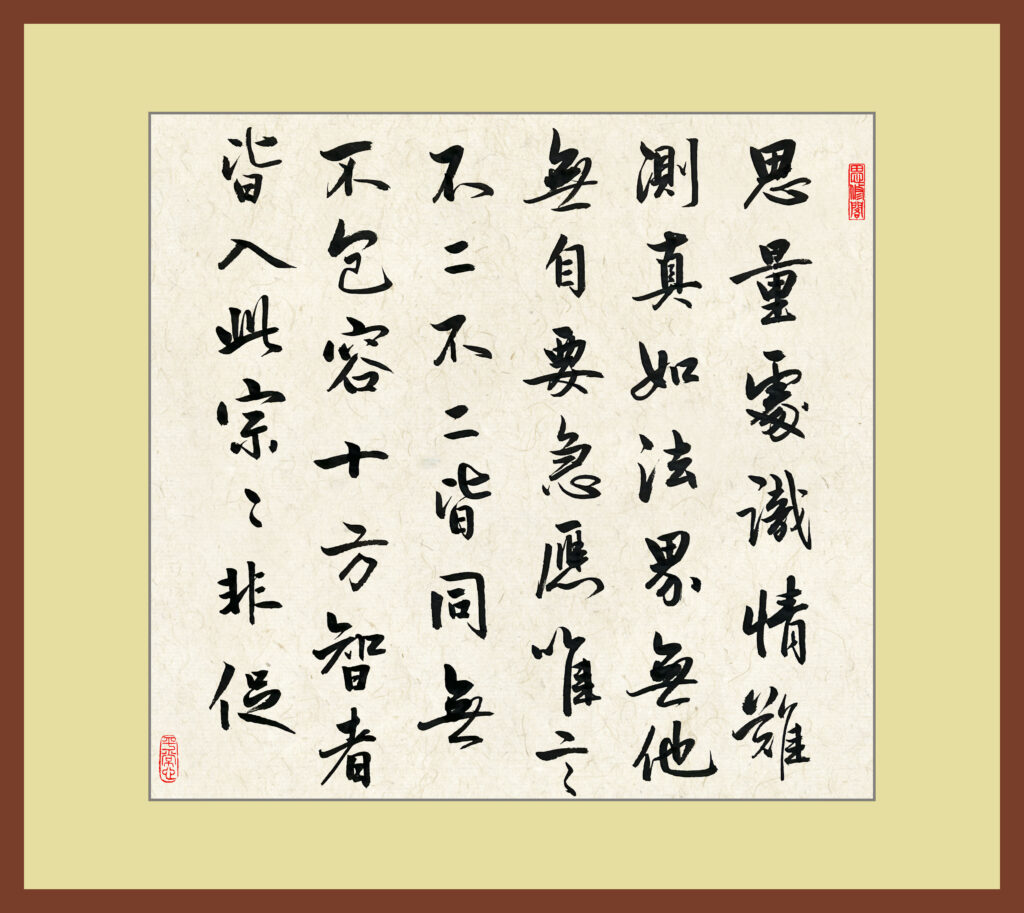 思修閣
思量處識情難
測真如法界無他
無自要急應唯言
不二不二皆同無
不包容十方智者
皆入此宗〻非促
平常心